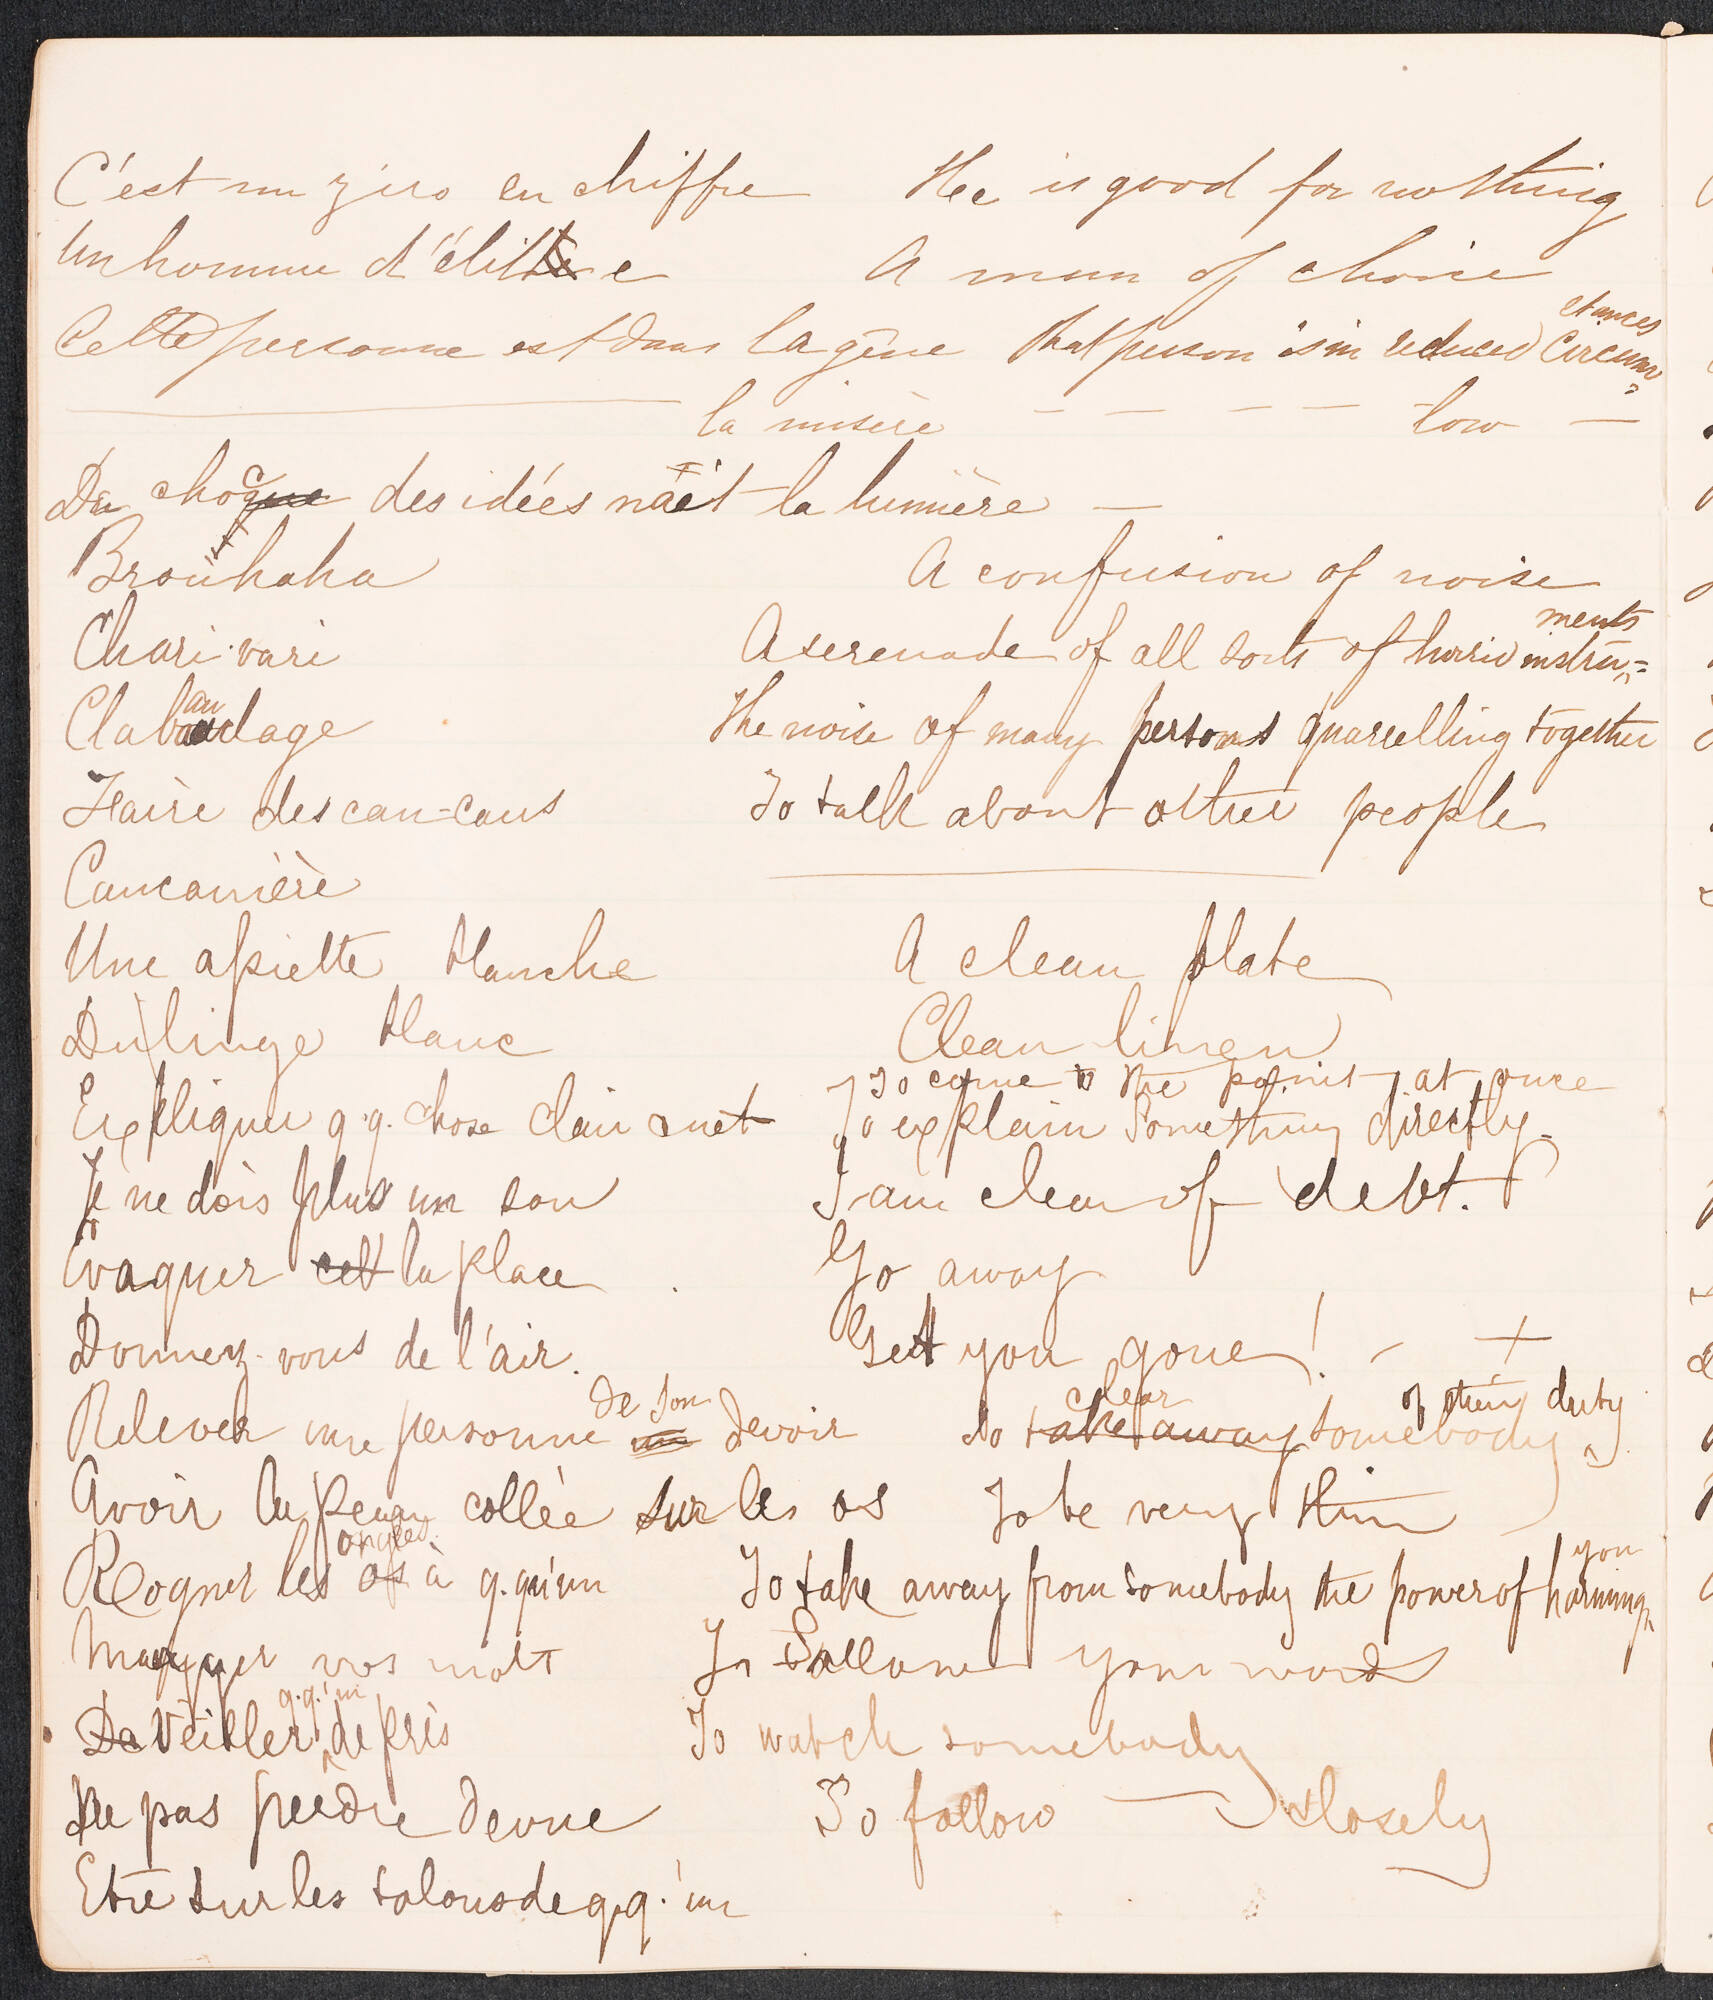 C'est un zéro en chiffre He is good for nothing
Un homme d'élite A man of choice
Cette personne est dans la gêne That person is in reduced circumstances
la misère — — — — low —
Du choc des idées naît la lumière —
Brouhaha A confusion of noise
Chari-vari A serenade of all sorts of horrid instruments
Clabaudage The noise of many persons quarelling together
Faire des can-cans To talk about other people
Cancanière
Une assiette blanche A clean plate
Du linge blanc Clean linen
To come to the point at once
Expliquer q.q. chose clair & net To explain something directly.
Je ne dois plus un sou I am clear of debt.
Evaquer cet la place Go away
Donnez-vous de l'air. Get you gone! - +
Relever une personne de son devoir to take away clear somebody of their duty
Avoir la peau collée sur les os To be very thin
Rogner les os ongles à q.qu'un To take away from somebody the power of harming you
vos mots To Swallow your words
De Veiller q.q.'un de près To watch somebody
Ne pas perdre de vue To follow — closely
Etre sur les talons de q.q.'un